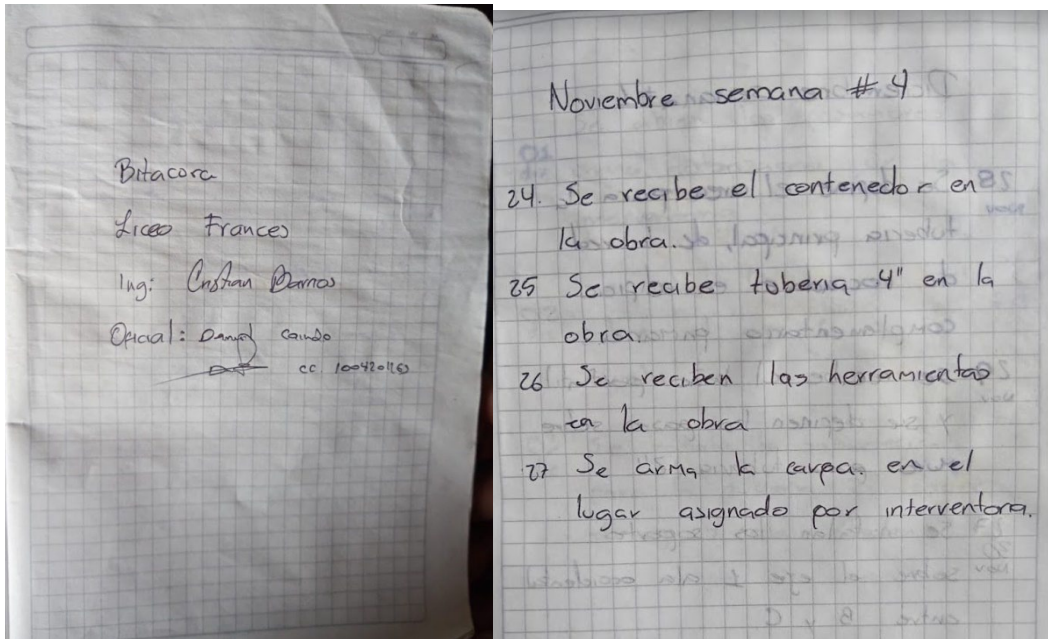 Bitacora
Liceo Frances
Ing: Cristian Barros
Oficial: Caindo
cc
Noviembre semana # 4
24. Se recibe el contenedor en
la obra.
25 Se recibe tuberia 4" en la
obra.
26 Se reciben las herramientas
en la obra
27 Se arma la carpa. en el
lugar asignado por interventoria.